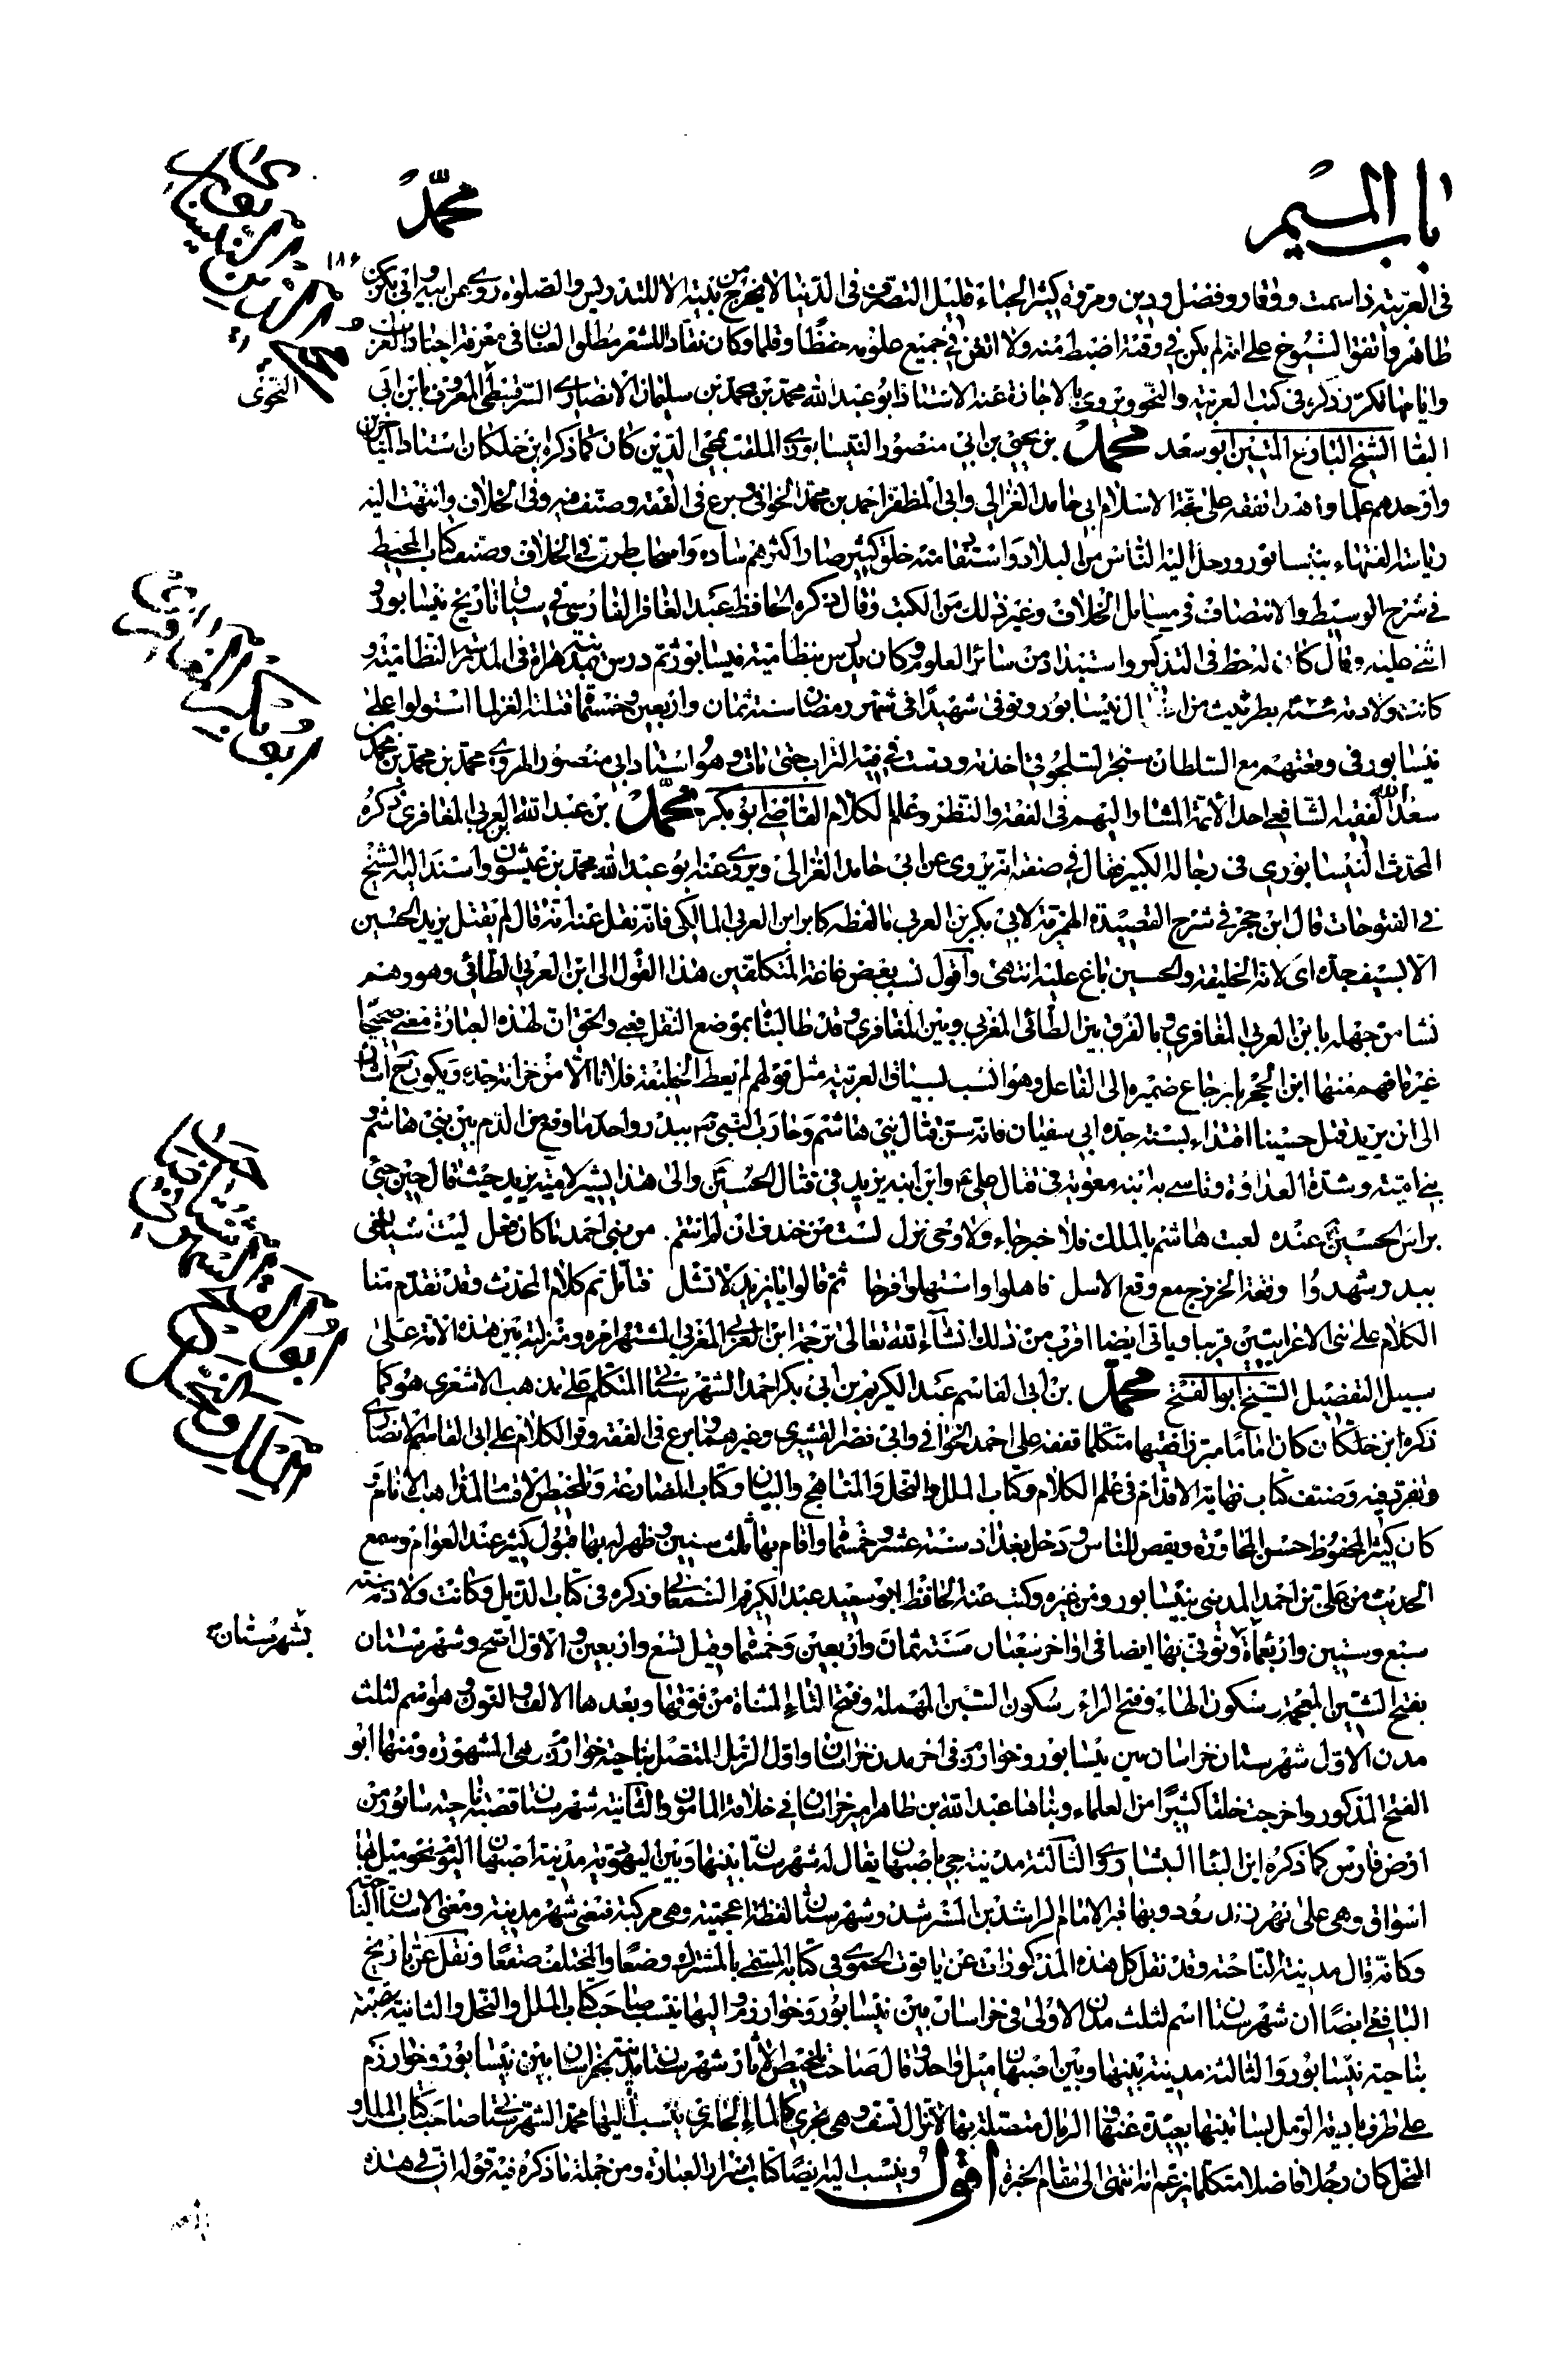 باب الميم
محمد
١٨٦
فى العربية ذا سمت ووقار وفضل ودين ومروة كثير الحياء قليل التصرف فى الدنيا لا يخرج من بيته الا للتدريس والصلوة روى عن ابيه وابى بكر بن
طاهر واتفق الشيوخ على انه لم يكن فى وقته اضبط منه ولا اتقن فى جميع علومه حفظا وقلما وكان نقادا للشعر مطلق العنان فى معرفة اخبار العرب
وايامها تكرر ذكره فى كتب العربية والنحو ويروى بالاجازة عنه الاستاذ ابو عبد الله محمد بن محمد بن سليمان الانصارى السرقسطى المعروف بابن ابى
البقا الشيخ البارع المتين ابو سعد محمد بن يحيى بن ابى منصور النيسابورى الملقب بمحيى الدين كان كما ذكره ابن خلكان استاد المتاخرين
واوحدهم علما وزهدا تفقه على حجة الاسلام ابى حامد الغزالى وابى المظفر احمد بن محمد الخوافى وبرع فى الفقه وصنف فيه وفى الخلاف وانتهت اليه
رياسة الفقهاء بنيسابور ورحل اليه الناس من البلاد واستفاد منه خلق كثير صار اكثرهم سادة واصحاب طرق فى الخلاف وصنف كتاب المحيط
فى شرح الوسيط والانتصاف فى مسايل الخلاف وغير ذلك من الكتب وقال ذكره الحافظ عبد الغافر الفارسى فى سياق تاريخ نيسابور و
اثنى عليه وقال كان له حظ فى التذكير واستمداد من سائر العلوم وكان يدرس بنظامية نيسابور ثم درس بمدينة هراة فى المدرسة النظامية و
كانت ولادته سنة بطريثيث من نيسابور وتوفى شهيدا فى شهر رمضان سنة ثمان واربعين وخمسمأة قتلته الغز لما استولوا على
نيسابور فى وقعتهم مع السلطان سنجر السلجوقى اخذته ودست فى فيه التراب حتى مات وهو استاد ابى منصور المروى محمد بن محمد بن محمد بن
سعد الله الفقيه الشافعى احد الأئمة المشار اليهم فى الفقه والنظر وعلم الكلام القاضى ابو بكر محمد بن عبد الله بن العربى المغافرى ذكره
المحدث النيسابورى فى رجاله الكبير فقال فى صفته انه يروى عن ابى حامد الغزالى ويروى عنه ابو عبد الله محمد بن عيشون واسند اليه الشيخ
فى الفتوحات قال ابن حجر فى شرح القصيدة الهمزية لابى بكر بن العربى ما لفظه كابر ابن العربى المالكى فانه نقل عنه انه قال لم يقتل يزيد الحسين
الا بسيف جده اى لانه الخليفة والحسين باغ عليه انتهى واقول نسب بعض غاغة المتكلفين هذا القول الى ابن العربى الطائى وهو وهم
نشا من جهله بابن العربى المغافرى وبالفرق بين الطائى المغربى وبين المغافرى وقد طالبنا بموضع النقل فعى والحق ان لهذه العبارة معنى صحيحا
غير ما فهم منها ابن الحجر بارجاع ضميره الى الفاعل وهو انسب لسياق العربية مثل قولهم لم يعط الخليفة فلانا الا من خزانة جده ويكون ح اشارة
الى ان يزيد قتل حسينا اقتداء بسنة جده ابى سفيان فانه سن قتال بنى هاشم وحارب النبى ص ببدر واحد ما وقع من الدم بين بنى هاشم و
بنى امية وشدة العداوة وتاسى به ابنه معوية فى قتال على ع وابن ابنه يزيد فى قتال الحسين ع والى هذا يشير لامية يزيد حيث قال حين جئ
براس الحسين ع عنده لعبت هاشم بالملك فلا خبر جاء ولا وحى نزل لست من خندف ان لم انتقم من بنى احمد ما كان فعل ليت اشياخى
ببدر شهدوا وقعة الخزرج مع وقع الاسل فاهلوا واستهلوا فرحا ثم قالوا يا يزيد لا تشل فتامل تم كلام المحدث وقد تقدم منا
الكلام على نبى الاعرابيين قريبا وياتى ايضا اقرب من ذلك انشاء الله تعالى ترجمة ابن العربى المغربى المشتهر امره ومنزلته بين هذه الامة على
سبيل التفضيل الشيخ ابو الفتح محمد بن ابى القاسم عبد الكريم بن ابى بكر احمد الشهرستانى المتكلم على مذهب الاشعرى هو كما
ذكره ابن خلكان كان اماما مبرزا فقيها متكلما تفقه على احمد الخوافى وابى نصر القشيرى وغيرهما وبرع فى الفقه وقرا الكلام على ابى القاسم الانصارى
وتفرد فيه وصنف كتاب نهاية الاقدام فى علم الكلام وكتاب الملل والنحل والمناهج والبيان وكتاب المضارعة وتلخيص الاقسام لمذاهب الانام و
كان كثير المحفوظ حسن المحاورة ويعظ للناس ودخل بغداد سنة عشر وخمسمأة واقام بها ثلث سنين وظهر له بها قبول كثير عند العوام وسمع
الحديث من على بن احمد المدينى بنيسابور ومن غيره وكتب عنه الحافظ ابو سعيد عبد الكريم السمعانى وذكره فى كتاب الذيل وكانت ولادته سنة
سبع وستين واربعمأة وتوفى بها ايضا فى اواخر شعبان سنة ثمان واربعين وخمسمأة وقيل تسع واربعين والاول اصح وشهرستان
بفتح الشين المعجمة وسكون الهاء وفتح الراء وسكون السين المهملة وفتح التاء المثناة من فوقها وبعدها الالف والنون وهو اسم لثلث
مدن الاول شهرستان خراسان بين نيسابور وخوارزم فى اخر مدن خراسان واول الرمل المتصل بناحية خوارزم وهى المشهورة ومنها ابو
الفتح المذكور واخرجت خلقا كثيرا من العلماء وبناها عبد الله بن طاهر امير خراسان فى خلافة المامون والثانية شهرستان قصبة ناحية سابور من
ارض فارس كما ذكره ابن البقا البشارى والثالثة مدينة جى باصبهان يقال له شهرستان بينها وبين اليهودية مدينة اصبهان اليوم نحو ميل لها
اسواق وهى على نهر زندرود وبها قبر الامام الراشد بن المسترشد وشهرستان لفظة اعجمية وهى مركبة فمعنى شهر مدينة ومعنى الاستان الناحية
وكانه قال مدينة الناحية وقد نقل كل هذه المذكورات عن ياقوت الحموى فى كتابه المسمى بالمشترك وضعا والمختلف صقعا ونقل عن تاريخ
اليافعى ايضا ان شهرستان اسم لثلث مدن الاولى فى خراسان بين نيسابور وخوارزم واليها ينسب صاحب كتاب الملل والنحل والثانية قصبة
بناحية نيسابور والثالثة مدينة بينها وبين اصبهان ميل واحد وقال صاحب تلخيص الاثار شهرستان مدينة بخراسان بين نيسابور وخوارزم
على طرف بادية الرمل بساتينها بعيدة عنها والرمال متصلة بها لا تزال تسف وهى تجرى كالماء الجارى ينسب اليها محمد الشهرستانى صاحب كتاب الملل و
النحل كان رجلا فاضلا متكلما يزعم انه انتهى الى مقام الحيرة اقول وينسب اليه ايضا كتاب اسرار العبادة ومن جملة ما ذكره فيه قوله ان فى هذه
النحوى
ابو بكر بن العربى المغافرى
بشهرستان
ابو الفتح الشهرستانى صاحب الملل والنحل